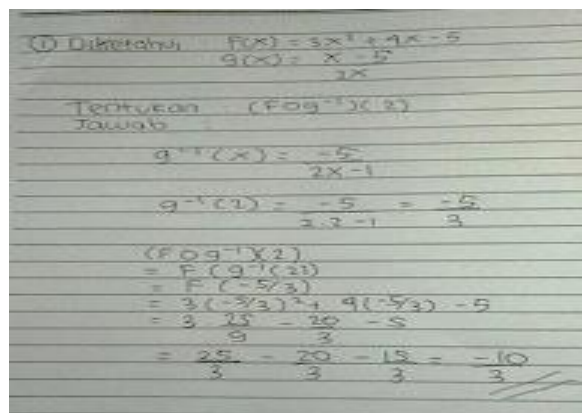 ① Diketahui F(x) = 3x² + 4x - 5
g(x) = x - 5 / 2x
Tentukan : (Fog⁻¹)(2)
Jawab
g⁻¹(x) = -5 / 2x - 1
g⁻¹(2) = -5 / 2.2 - 1 = -5 / 3
(Fog⁻¹)(2)
= F(g⁻¹(2))
= F(-5/3)
= 3(-5/3)² + 4(-5/3) - 5
= 3 25/9 - 20/3 - 5
= 25/3 - 20/3 - 15/3 = -10/3